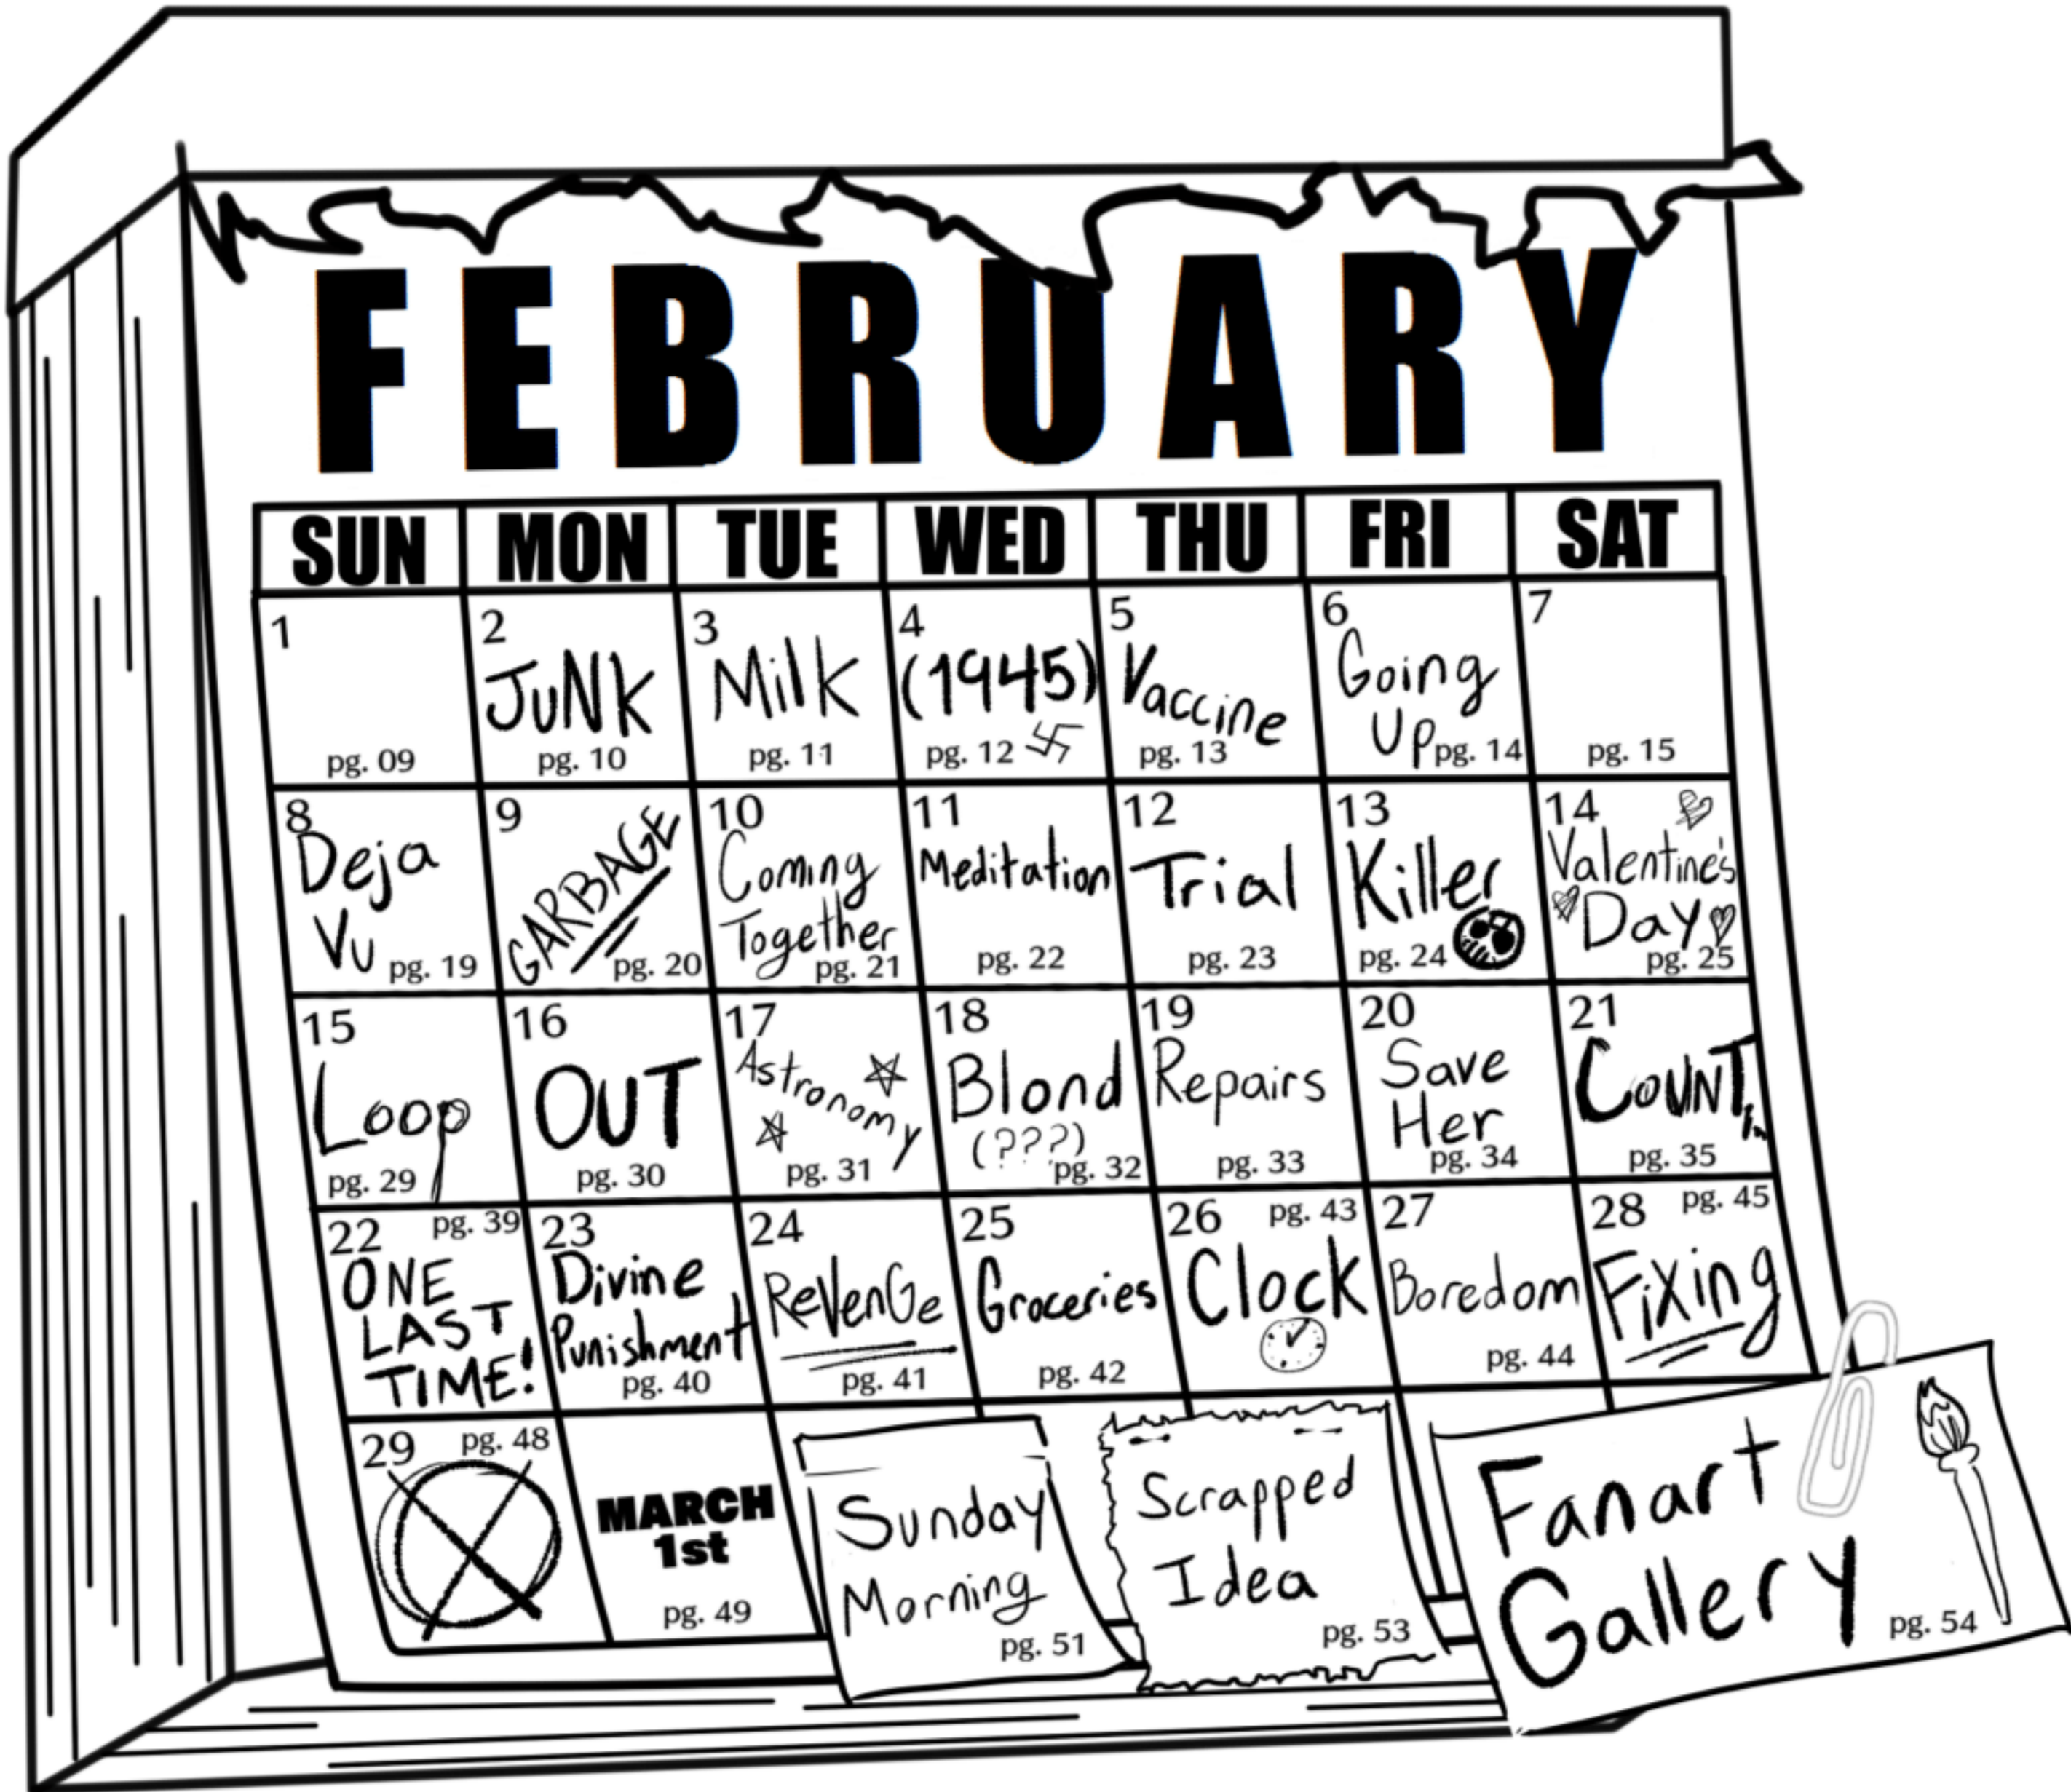 FEBRUARY
SUN MON TUE WED THU FRI SAT
1
pg. 09
2
JUNK
pg. 10
3
Milk
pg. 11
4
(1945)
pg. 12
5
Vaccine
pg. 13
6
Going
Up pg. 14
7
pg. 15
8
Deja
Vu pg. 19
9
GARBAGE
pg. 20
10
Coming
Together
pg. 21
11
Meditation
pg. 22
12
Trial
pg. 23
13
Killer
pg. 24
14
Valentine's
Day
pg. 25
15
Loop
pg. 29
16
OUT
pg. 30
17
Astronomy
pg. 31
18
Blond
(???)
pg. 32
19
Repairs
pg. 33
20
Save
Her
pg. 34
21
COUNT
pg. 35
22 pg. 39
ONE
LAST
TIME!
23
Divine
Punishment
pg. 40
24
ReVenGe
pg. 41
25
Groceries
pg. 42
26 pg. 43
Clock
27
Boredom
pg. 44
28 pg. 45
FiXing
29 pg. 48
MARCH
1st
pg. 49
Sunday
Morning
pg. 51
Scrapped
Idea
pg. 53
Fanart
Gallery
pg. 54